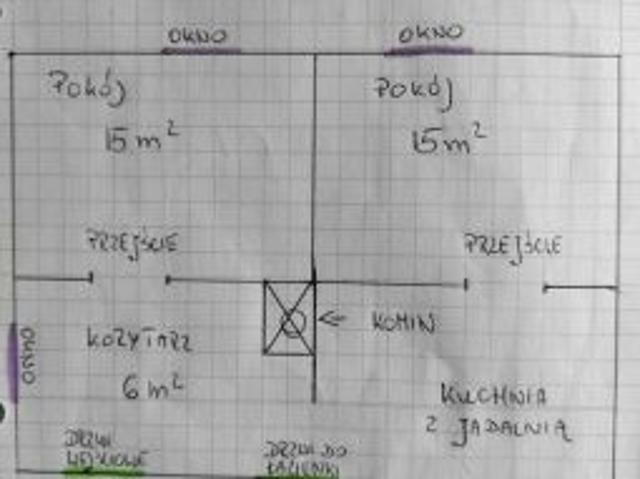 OKNO
OKNO
POKÓJ
15 m²
POKÓJ
15 m²
PRZEJŚCIE
PRZEJŚCIE
KOMIN
OKNO
KORYTARZ
6 m²
KUCHNIA
Z JADALNIĄ
DRZWI
WEJŚCIOWE
DRZWI DO
ŁAZIENKI